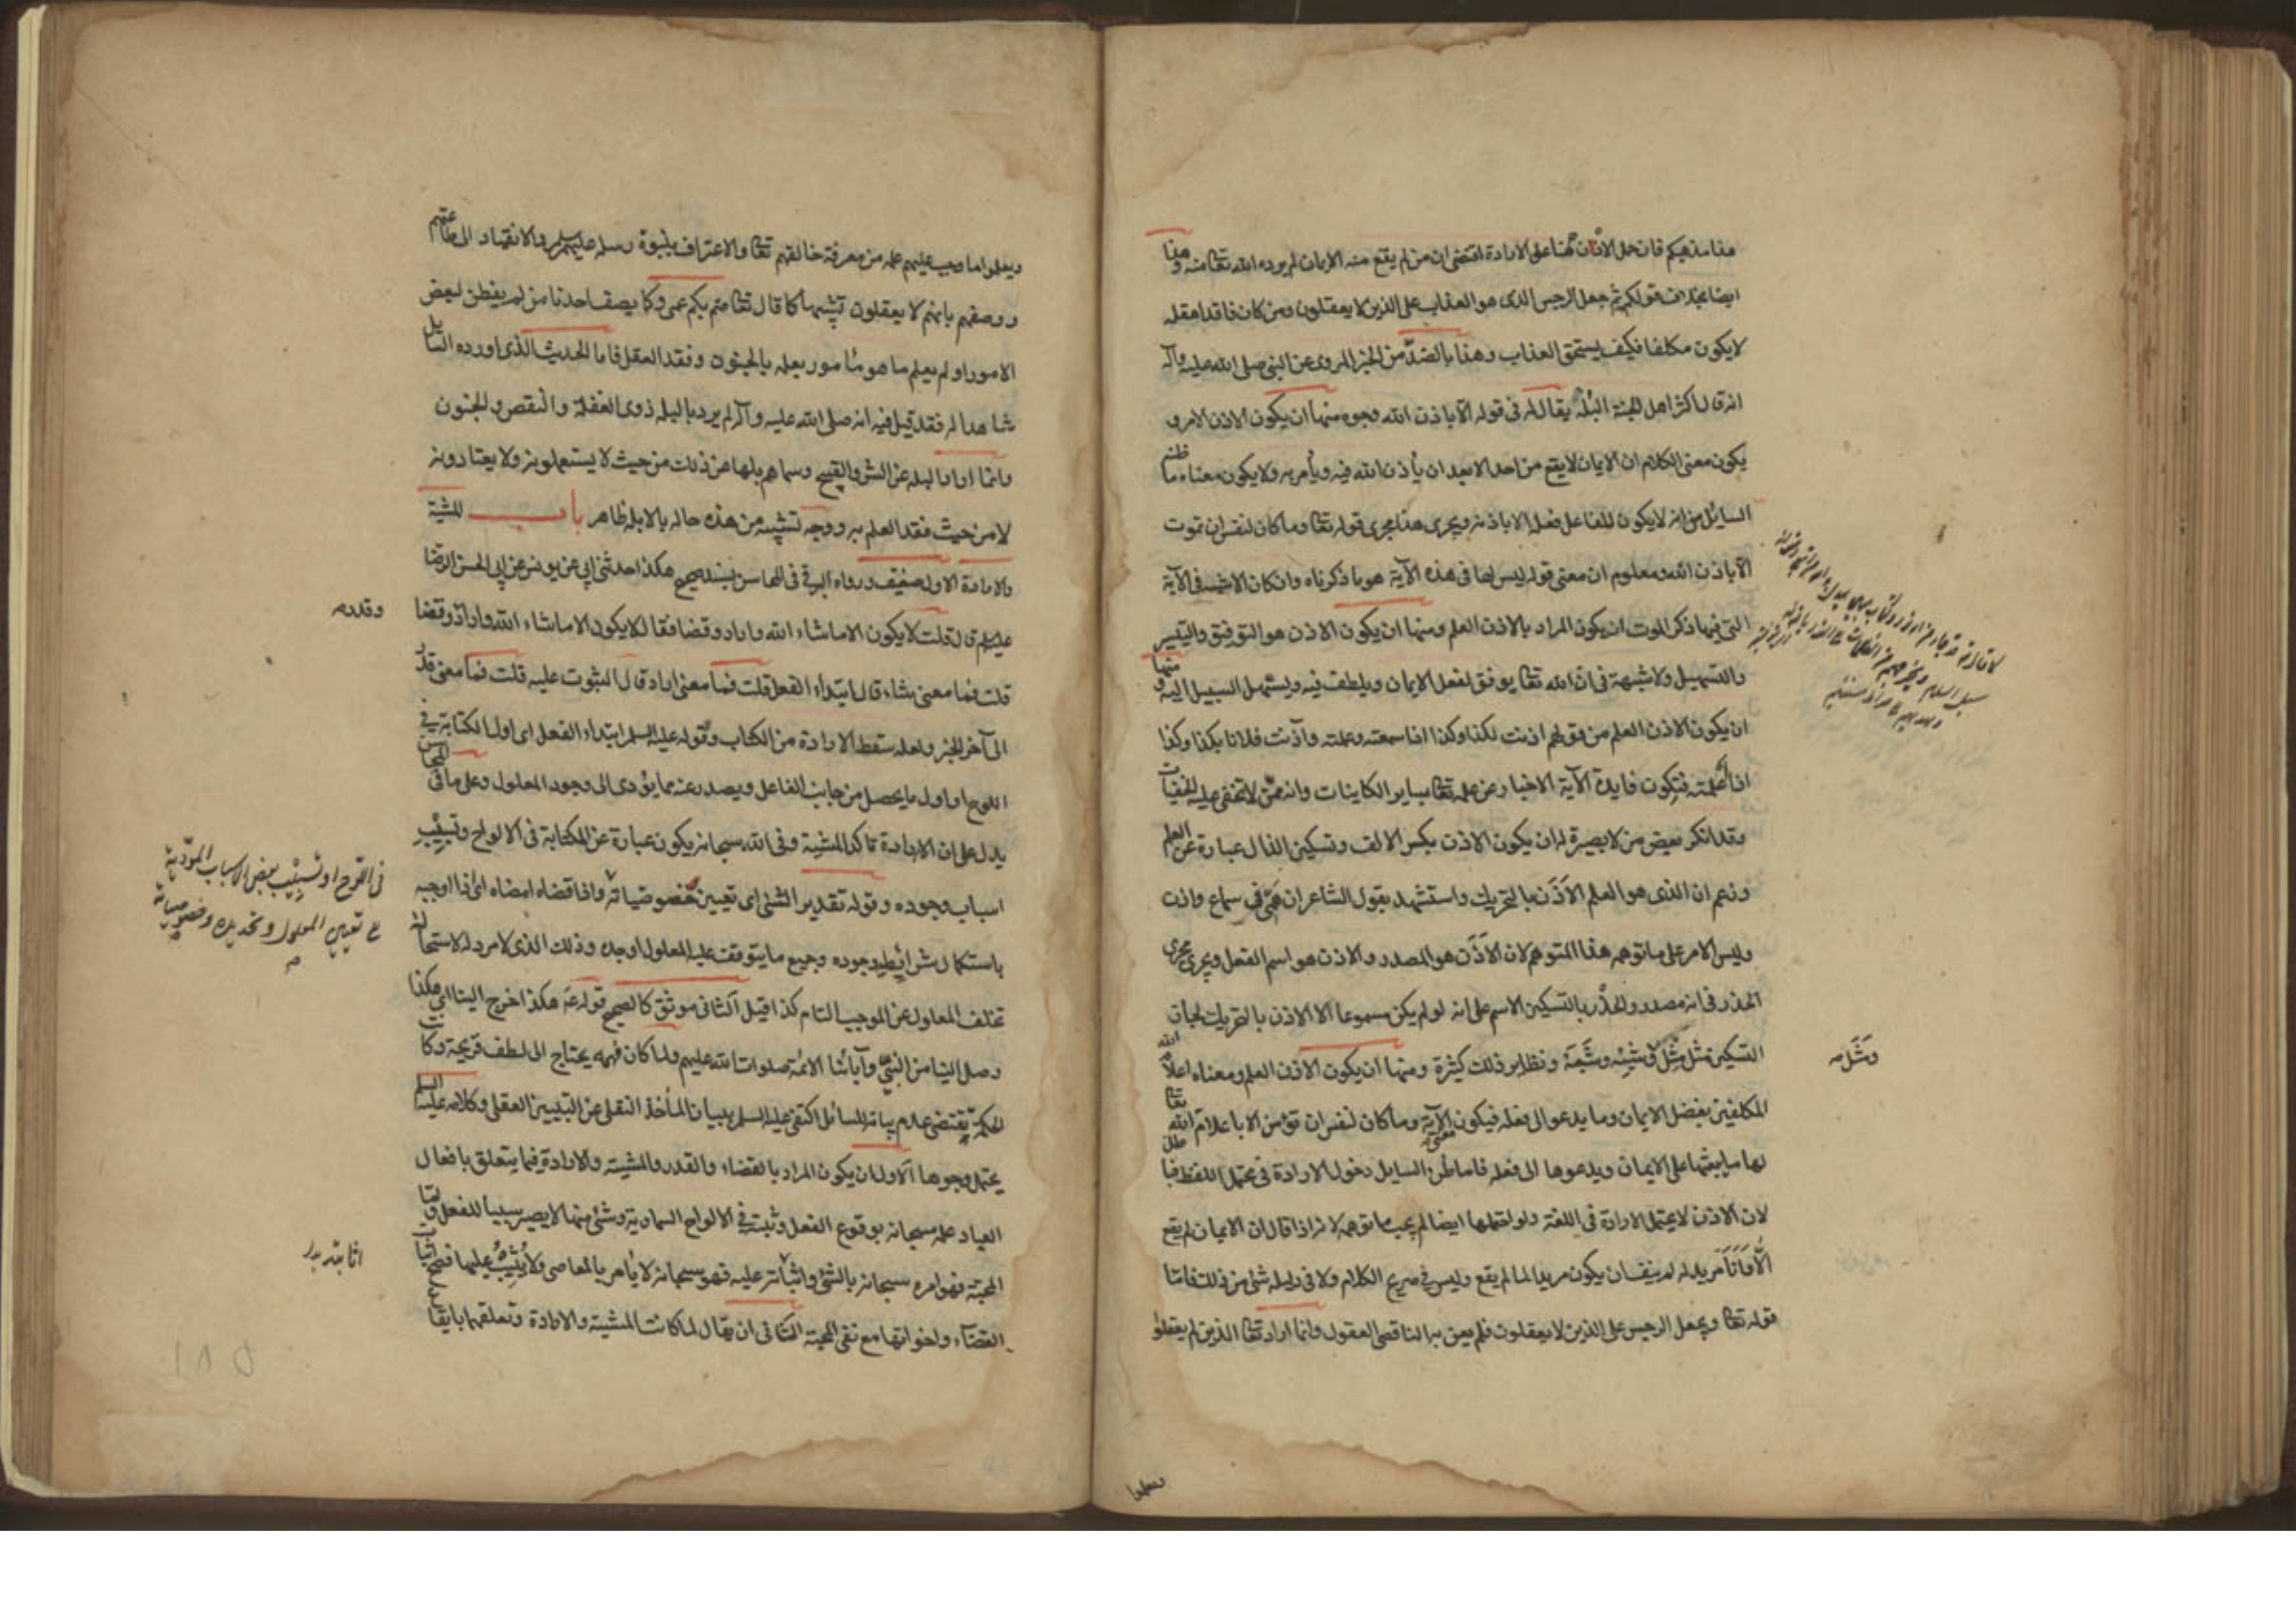 هذا مذهبكم فان حمل الاذن هنا على الارادة اقتضى ان من لم يقع منه الايمان لم يرده الله تعالى منه وهذا
ايضا بخلاف قولكم ثم جعل الرجس الذى هو العذاب على الذين لا يعقلون ومن كان فاقدا عقله
لا يكون مكلفا فكيف يستحق العذاب وهذا بالضد من الخبر المروى عن النبى صلى الله عليه وآله
انه قال اكثر اهل الجنة البله يقال له فى قوله الا باذن الله وجوه منها ان يكون الاذن الامر و
يكون معنى الكلام ان الايمان لا يقع من احد الا بعد ان يأذن الله فيه ويأمر به ولا يكون معناه ما ظنه
السايل من انه لا يكون للفاعل فعله الا باذنه ويجرى هذا مجرى قوله تعا وما كان لنفس ان تموت
الا باذن الله ومعلوم ان معنى قوله ليس لها فى هذه الآية هو ما ذكرناه وان كان الاشبه فى الآية
التى فيها ذكر الموت ان يكون المراد بالاذن العلم ومنها ان يكون الاذن هو التوفيق والتيسير
والتسهيل ولا شبهة فى ان الله تعا يوفق لفعل الايمان ويلطف فيه ويسهل السبيل اليه ومنها
ان يكون الاذن العلم من قولهم اذنت لكذا وكذا اذا سمعته وعلمته وآذنت فلانا بكذا وكذا
اذا اعلمته فتكون فايدة الآية الاخبار عن علمه تعا بساير الكاينات وانه ممن لا تخفى عليه الخفيات
وقد انكر بعض من لا بصيرة له ان يكون الاذن بكسر الالف وتسكين الذال عبارة عن العلم
وزعم ان الذى هو العلم الاَذَن بالتحريك واستشهد بقول الشاعر ان همى فى سماع واذن
وليس الامر على ما توهمه هذا المتوهم لان الاَذَن هو المصدر والاذن هو اسم الفعل ويجرى مجرى
الحذر فى انه مصدر والحذر بالتسكين الاسم على انه لو لم يكن مسموعا الا الاذن بالتحريك لجاز
التسكين مثل مِثْل وشِبْه وشَبَه ونظاير ذلك كثيرة ومنها ان يكون الاذن العلم ومعناه اعلام الله
المكلفين بفضل الايمان وما يدعو الى فعله فيكون معنى الآية وما كان لنفس ان تؤمن الا باعلام الله تعا
لها ما يبعثها على الايمان ويدعوها الى فعله فاما ظن السايل دخول الارادة فى محتمل اللفظ فباطل
لان الاذن لا يحتمل الارادة فى اللغة ولو احتملها ايضا لم يجب ما توهمه لانه اذا قال ان الايمان لم يقع
الا وانا مريد له لم ينف ان يكون مريدا لما لم يقع وليس فى صريح الكلام ولا فى دليله شئ من ذلك فاما
قوله تعا ويجعل الرجس على الذين لا يعقلون فلم يعن به الناقصى العقول وانما اراد تعا الذين لم يعقلوا
ومَثَل
ويعلموا ما وجب عليهم علمه من معرفة خالقهم تعا والاعتراف بنبوة رسله عليهم السلم والانقياد الى طاعتهم
ووصفهم بانهم لا يعقلون تشبيها كما قال تعا صم بكم عمى وكما يصف احدنا من لم يفطن لبعض
الامور او لم يعلم ما هو مأمور بعلمه بالجنون وفقد العقل فاما الحديث الذى اورده السايل
شاهدا له فقد قيل فيه انه صلى الله عليه وآله لم يرد بالبله ذوى الغفلة والنقص والجنون
وانما اراد البله عن الشر والقبيح وسماهم بلها عن ذلك من حيث لا يستعملونه ولا يعتادونه
لا من حيث فقد العلم به ووجه تشبيه من هذه حاله بالابله ظاهر باب المشية
والارادة الاول ضعيف ورواه البرقى فى المحاسن بسند صحيح هكذا حدثنى ابى عن يونس عن ابى الحسن الرضا
عليه السلم قال قلت لا يكون الا ما شاء الله واراد وقضا فقال لا يكون الا ما شاء الله واراد وقضا
قلت فما معنى شاء قال ابتداء الفعل قلت فما معنى اراد قال الثبوت عليه قلت فما معنى قدر
الى آخر الخبر ولعله سقط الارادة من الكتاب وقوله عليه السلم ابتداء الفعل اى اول الكتابة فى
اللوح او اول ما يحصل من جانب الفاعل ويصدر عنه مما يؤدى الى وجود المعلول وعلى ما فى المحاسن
يدل على ان الارادة تاكد المشية وفى الله سبحانه يكون عبارة عن الكتابة فى الالواح وتسبيب
اسباب وجوده وقوله تقدير الشئ اى تعيين خصوصياته واذا قضاه امضاه اى اذا اوجبه
باستكمال شرائط وجوده وجميع ما يتوقف عليه المعلول اوجده وذلك الذى لا مرد له لاستحالة
تخلف المعلول عن الموجب التام كذا قيل الثانى موثق كالصحيح قوله عه هكذا اخرج الينا اى هكذا
وصل الينا من النبى وآبائنا الائمة صلوات الله عليهم ولما كان فهمه يحتاج الى لطف قريحة وكانت
الحكمة تقتضى عدم بيانه للسائل اكتفى عليه السلم ببيان المأخذ النقلى عن التبيين العقلى وكلامه عليه السلم
يحتمل وجوها الاول ان يكون المراد بالقضاء والقدر والمشية والارادة فيما يتعلق بافعال
العباد علمه سبحانه بوقوع الفعل وثبته فى الالواح السماوية وشئ منها لا يصير سببا للفعل واما
المحبة فهو امره سبحانه بالشئ واثباته عليه فهو سبحانه لا يأمر بالمعاصى ولا يُثيب عليها فصح اثبات
القضاء واخواتها مع نفى المحبة الثانى ان يقال لما كانت المشية والارادة وتعلقهما بايقاع
وقدر
فى اللوح او تسبيب بعض الاسباب المؤدية
الى تعيين المعلول وتحديده وخصوصياته